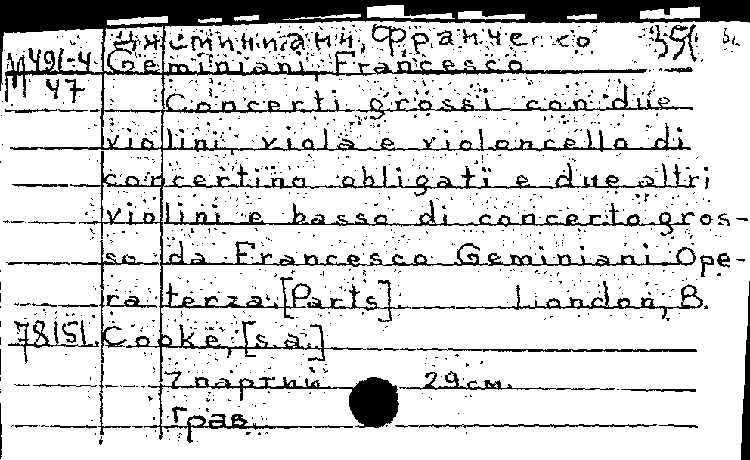 Джеминиани, Франческо
М 491-4 Geminiani, Francesco
47
Concerti grossi con due
violini, viola e violoncello di
concertino obligati e due altri
violini e basso di concerto gros-
so da Francesco Geminiani. Ope-
ra terza. [Parts]. London, B.
78151. Cooke, [s.a.]
7 партий 29 см.
Грав.